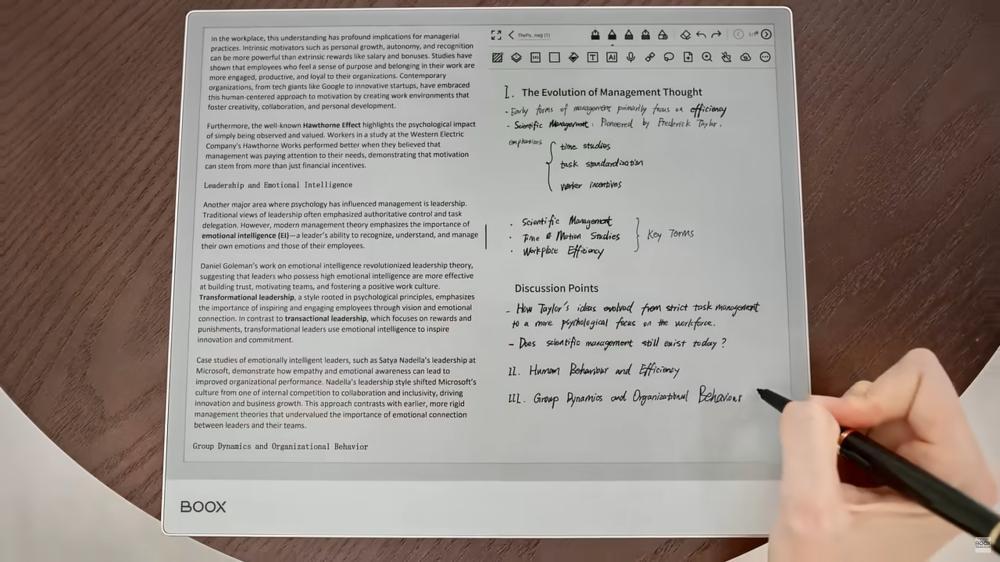 In the workplace, this understanding has profound implications for managerial
practices. Intrinsic motivators such as personal growth, autonomy, and recognition
can be more powerful than extrinsic rewards like salary and bonuses. Studies have
shown that employees who feel a sense of purpose and belonging in their work are
more engaged, productive, and loyal to their organizations. Contemporary
organizations, from tech giants like Google to innovative startups, have embraced
this human-centered approach to motivation by creating work environments that
foster creativity, collaboration, and personal development.
Furthermore, the well-known Hawthorne Effect highlights the psychological impact
of simply being observed and valued. Workers in a study at the Western Electric
Company's Hawthorne Works performed better when they believed that
management was paying attention to their needs, demonstrating that motivation
can stem from more than just financial incentives.
Leadership and Emotional Intelligence
Another major area where psychology has influenced management is leadership.
Traditional views of leadership often emphasized authoritative control and task
delegation. However, modern management theory emphasizes the importance of
emotional intelligence (EI)—a leader's ability to recognize, understand, and manage
their own emotions and those of their employees.
Daniel Goleman's work on emotional intelligence revolutionized leadership theory,
suggesting that leaders who possess high emotional intelligence are more effective
at building trust, motivating teams, and fostering a positive work culture.
Transformational leadership, a style rooted in psychological principles, emphasizes
the importance of inspiring and engaging employees through vision and emotional
connection. In contrast to transactional leadership, which focuses on rewards and
punishments, transformational leaders use emotional intelligence to inspire
innovation and commitment.
Case studies of emotionally intelligent leaders, such as Satya Nadella's leadership at
Microsoft, demonstrate how empathy and emotional awareness can lead to
improved organizational performance. Nadella's leadership style shifted Microsoft's
culture from one of internal competition to collaboration and inclusivity, driving
innovation and business growth. This approach contrasts with earlier, more rigid
management theories that undervalued the importance of emotional connection
between leaders and their teams.
Group Dynamics and Organizational Behavior
I. The Evolution of Management Thought
- Early forms of management primarily focus on efficiency
- Scientific Management: Pioneered by Frederick Taylor.
emphasises
time studies
task standardization
worker incentives
• Scientific Management
• Time & Motion Studies
• Workplace Efficiency
Key Terms
Discussion Points
- How Taylor's ideas evolved from strict task management
to a more psychological focus on the workforce.
- Does scientific management still exist today?
II. Human Behaviour and Efficiency
III. Group Dynamics and Organizational Behaviour
BOOX
BOOX